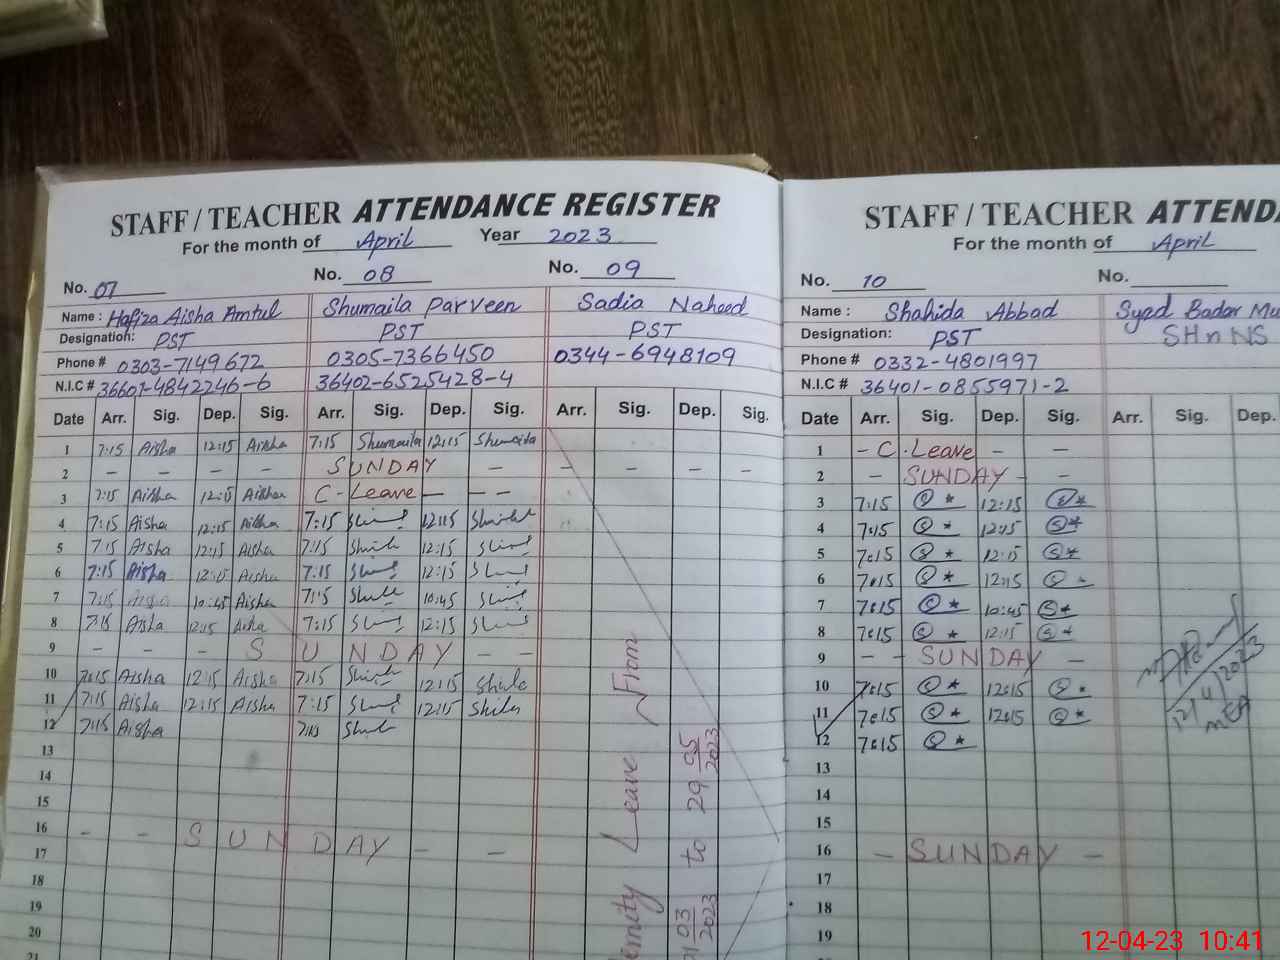 STAFF / TEACHER ATTENDANCE REGISTER
For the month of April Year 2023
No. 07 No. 08 No. 09
Name : Hafiza Aisha Amtul Shumaila Parveen Sadia Naheed
Designation: PST PST PST
Phone # 0303-7149672 0305-7366450 0344-6948109
N.I.C # 36601-4842246-6 36402-6525428-4
Date Arr. Sig. Dep. Sig. Arr. Sig. Dep. Sig. Arr. Sig. Dep. Sig.
1 7:15 Aisha 12:15 Aisha 7:15 Shumaila 12:15 Shumaila
2 - - - - SUNDAY - - - - -
3 7:15 Aisha 12:15 Aisha C-Leave - - -
4 7:15 Aisha 12:15 Aisha 7:15 12:15
5 7:15 Aisha 12:15 Aisha 7:15 12:15
6 7:15 Aisha 12:15 Aisha 7:15 12:15
7 7:15 Aisha 10:45 Aisha 7:15 10:45
8 7:15 Aisha 12:15 Aisha 7:15 12:15
9 - - - SUNDAY - -
10 7:15 Aisha 12:15 Aisha 7:15 12:15
11 7:15 Aisha 12:15 Aisha 7:15 12:15
12 7:15 Aisha 7:15
13
14
15
16 - - SUNDAY - -
17
18
19
20
21
Leave From
03/2023 to 29 05/2023
STAFF / TEACHER ATTENDA
For the month of April
No. 10 No.
Name : Shahida Abbad Syad Badar Mu
Designation: PST SHnNS
Phone # 0332-4801997
N.I.C # 36401-0855971-2
Date Arr. Sig. Dep. Sig. Arr. Sig. Dep.
1 - C.Leave - -
2 - SUNDAY - -
3 7:15 12:15
4 7:15 12:15
5 7:15 12:15
6 7:15 12:15
7 7:15 10:45
8 7:15 12:15
9 - - SUNDAY -
10 7:15 12:15
11 7:15 12:15
12 7:15
13
14
15
16 - SUNDAY -
17
18
19
12/4/2023
MEA
12-04-23 10:41